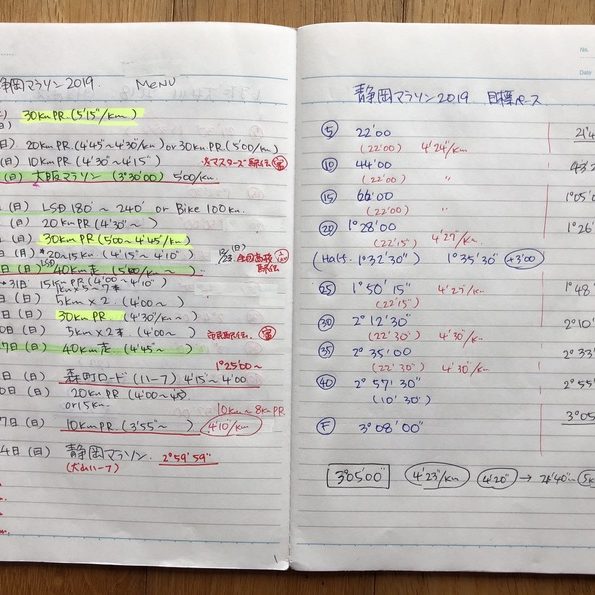 静岡マラソン2019. MENU
30km PR. (5'15"/km)
日) 20km PR (4'45"~4'30"/km) or 30km PR. (5'00/km)
(日) 10km PR (4'30"~4'15")
(日) 大阪マラソン (3°30'00) 5'00/km.
(日) LSD 180'~240' or Bike 100km.
(日) 20km PR (4'30"~ )
(日) 30km PR (5'00~4'45"/km)
(日) *20~15km (4'15"~4'10")
日 (日) LSD 40km走 (5'00/km~ )
*31日 15km PR (4'00"~4'10")
(日) 5km×2. (4'00~ )
(日) 30km PR (4'30"/km~ )
0日 (日) 5km×2本 (4'00~ ) 市民駅伝.
7日 (日) 40km走. (4'45"~ )
1°25'00~
日 (日) 森町ロード (ハーフ) 4'15"~4'00
0日 (日) 20km PR (4'00~4'45)
or 15km
10km~8km PR
7日 (日) 10km PR. (3'55"~ ) 4'10/km
4日 (日) 静岡マラソン. 2°59'59"
(犬山ハーフ)
1
No.
Date
静岡マラソン2019 目標ペース
⑤ 22'00
(22'00) 4'24"/km
⑩ 44'00
(22'00) 〃
⑮ 66'00
(22'00) 〃
⑳ 1°28'00
(22'15") 4'27"/km
(Half. 1°32'30") 1°35'30" +3'00
㉕ 1°50'15" 4'27"/km
(22'15")
㉚ 2°12'30"
(22'30") 4'30"/km
㉟ 2°35'00
(22'30) 4'30"/km
㊵ 2°57'30"
(10'30")
Ⓕ 3°08'00"
3°05'00" 4'23"/km 4'20" →
1°05'0
1°26'
1°48"
2°10'
2°33'
2°55'
3°05'